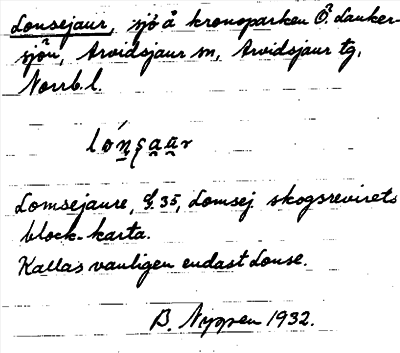 Lonsejaur, sjö å kronoparken Ö. Lauker-
sjön, Arvidsjaur sn, Arvidsjaur tg,
Norrb. l.
Lomsejaure, G. 35, Lomsej skogsrevirets
block-karta.
Kallas vanligen endast Lonse.
B. Nyppen 1932.